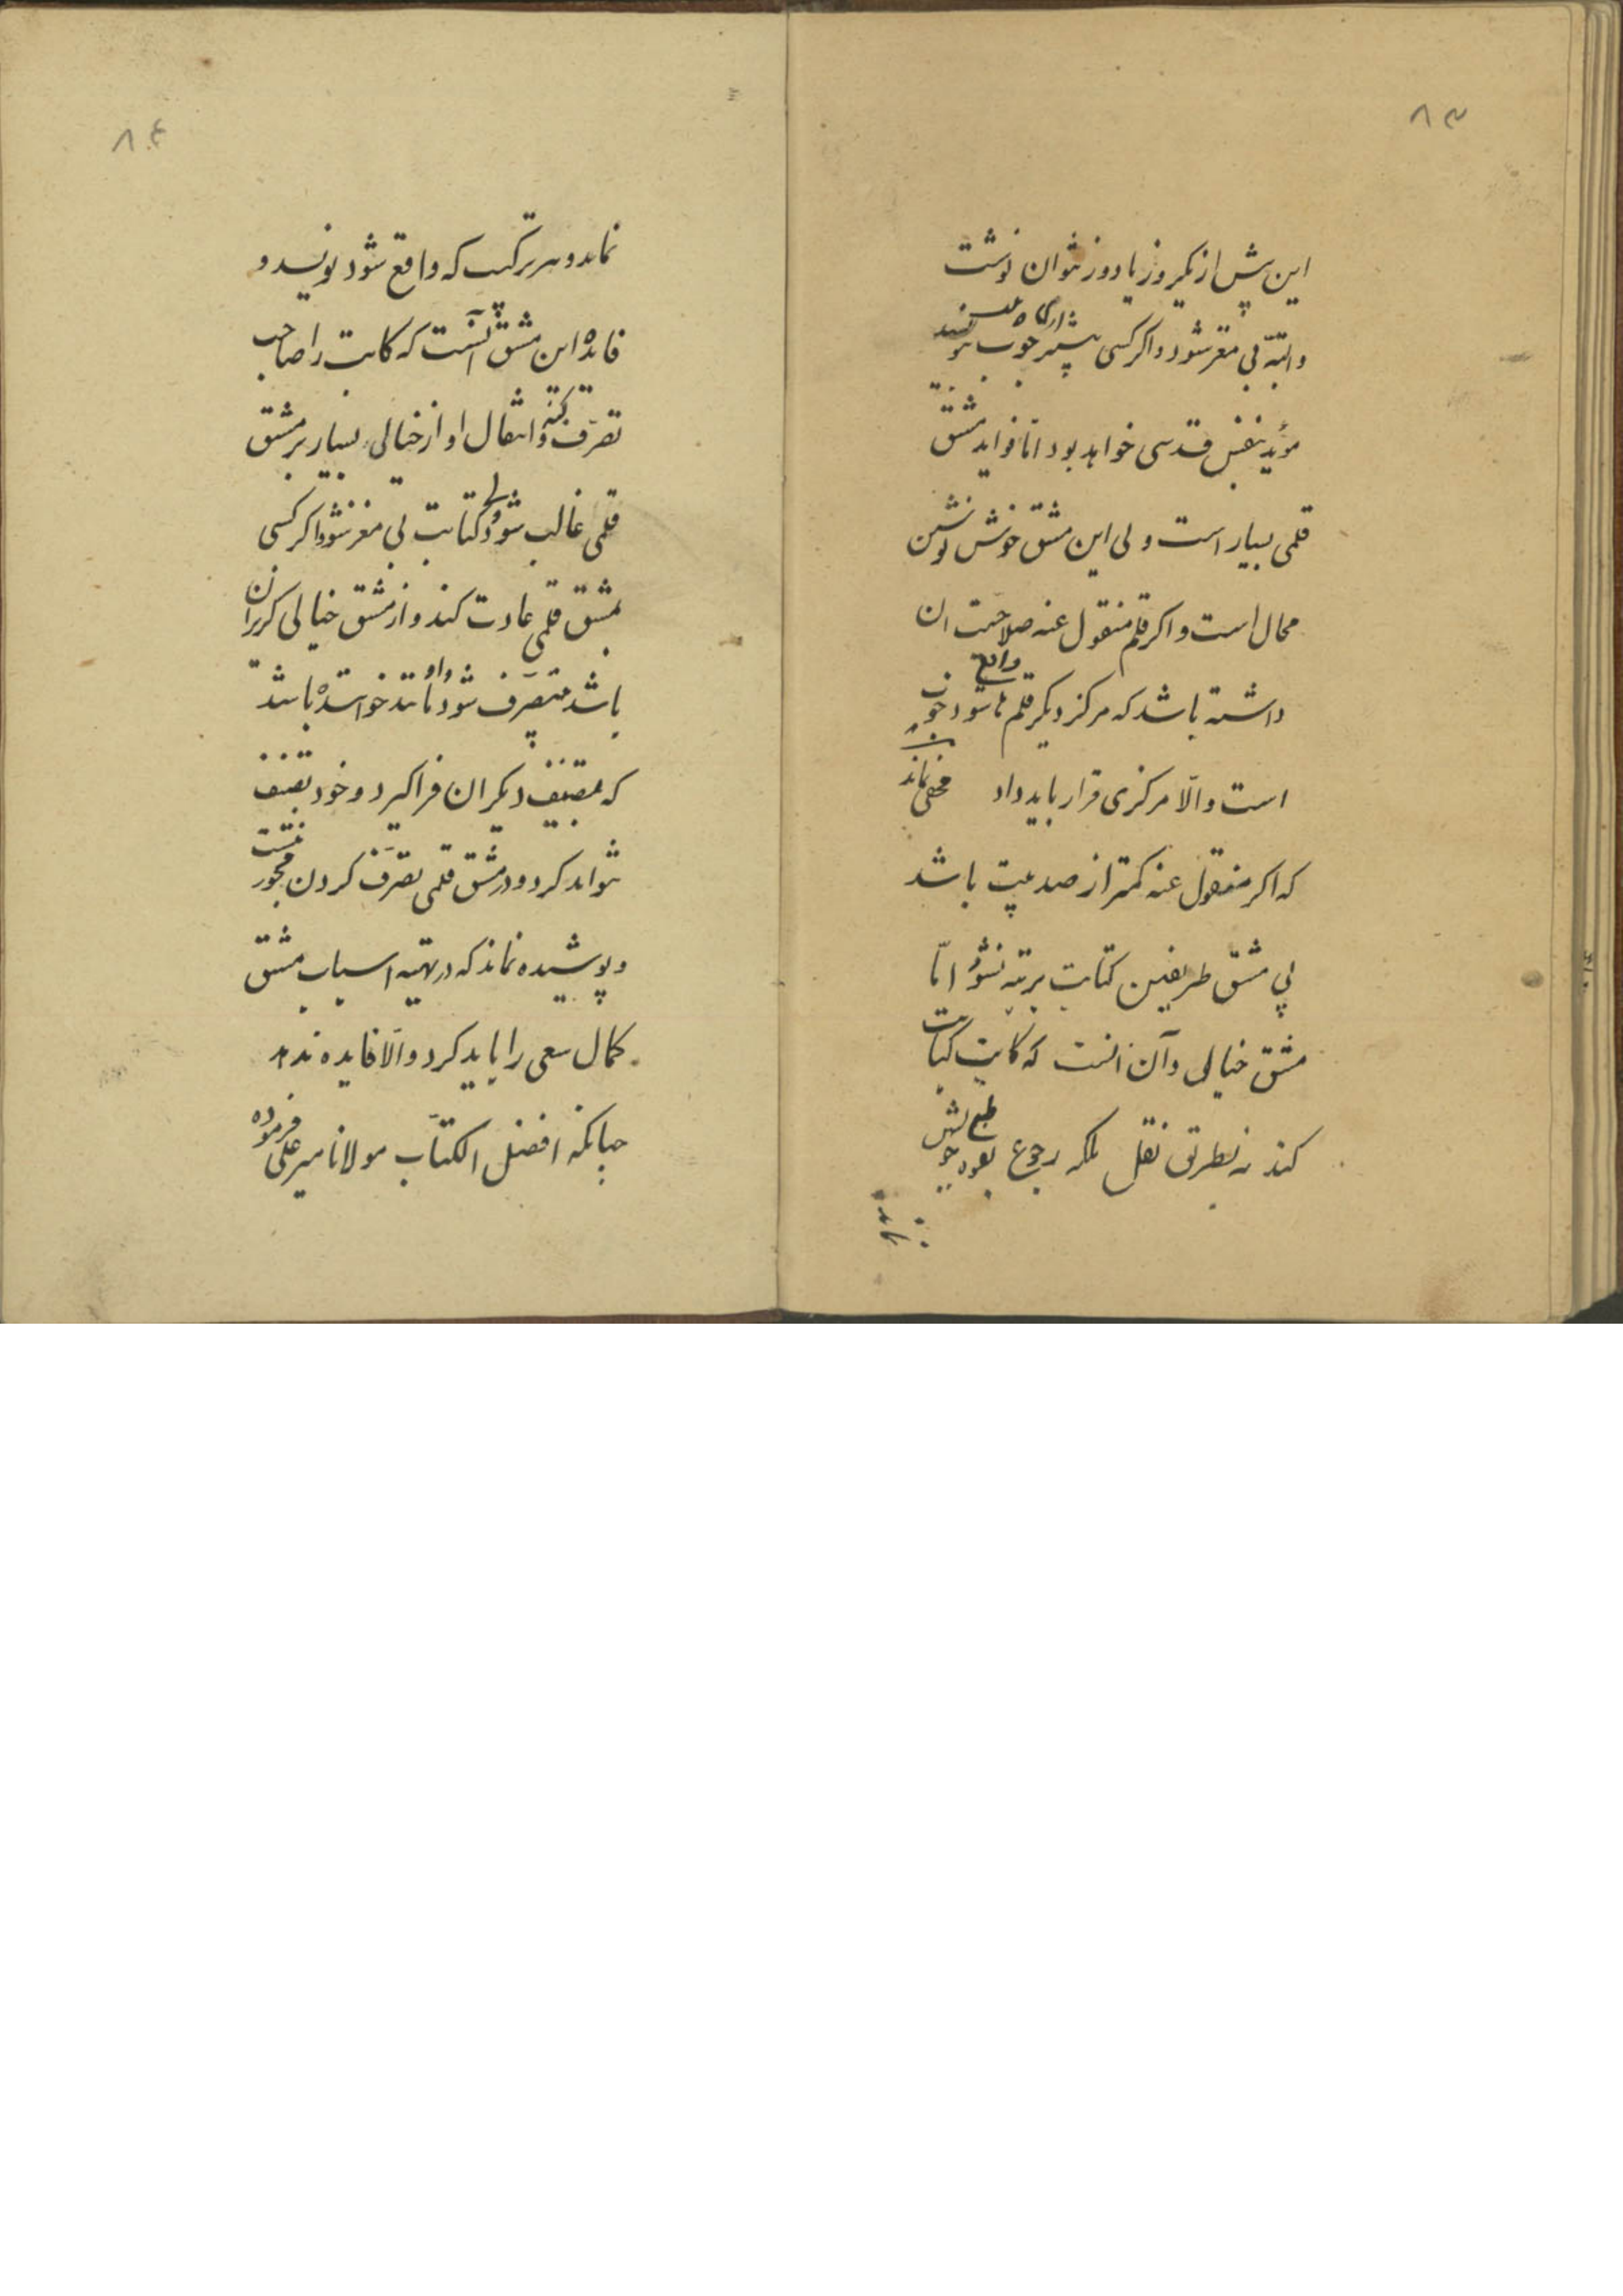 ۸۳
این پیش از یکروز یا دو روز نتوان نوشت
و البته بی مغز شود و اکر کسی خوب
مؤید بنفس قدسی خواهد بود امّا فواید مشق
قلمی بسیار است ولی این مشق خوش نوشتن
محال است و اکر قلم منقول عنه صلاحیت ان
داشته باشد که مرکز دیکر قلم ها شود خوب
است و الّا مرکزی قرار باید داد مخفی نماند
که اکر منقول عنه کمتر از صد بیت باشد
بی مشق طریقین کتابت برتبه نشود امّا
مشق خیالی و آن انست که کاتب کتابت
کند نه بطریق نقل بلکه رجوع بقوه طبع خویش
۸۴
نماید و هر ترکیب که واقع شود بنویسد و
فایده این مشق آنست که کاتب را صاحب
تصرّف کند و انتقال او از خیالی بسیار بر مشق
قلمی غالب شود ولی کتابت بی مغز شود و اکر کسی
بمشق قلمی عادت کند و از مشق خیالی کریزان
باشد بی تصرّف شود و مانند خواننده باشد
که تصنیف دیکران فراکیرد و خود تصنیف
نتواند کرد و در مشق قلمی تصرّف کردن مجوز نیست
و پوشیده نماند که در تهیه اسباب مشق
کمال سعی را باید کرد و الّا فایده ندهد
چنانکه افضل الکتّاب مولانا میر علی فرموده